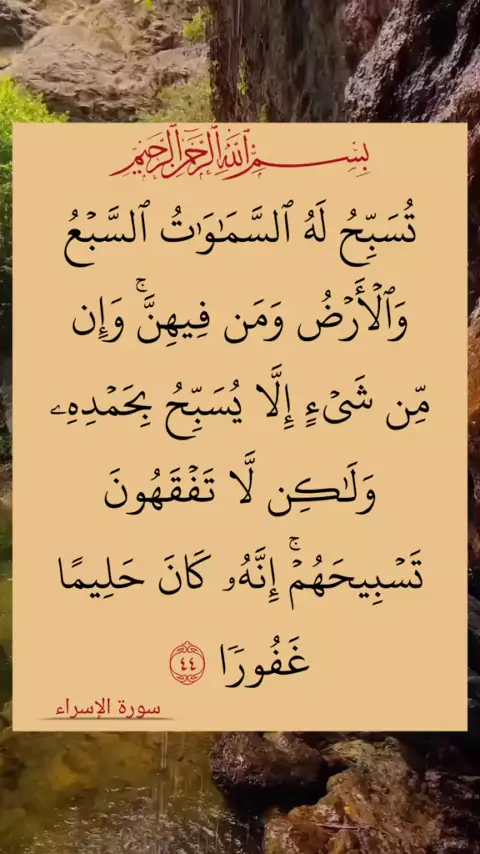 بِسْمِ ٱللَّهِ ٱلرَّحْمَٰنِ ٱلرَّحِيمِ
تُسَبِّحُ لَهُ ٱلسَّمَٰوَٰتُ ٱلسَّبْعُ
وَٱلْأَرْضُ وَمَن فِيهِنَّ ۚ وَإِن
مِّن شَىْءٍ إِلَّا يُسَبِّحُ بِحَمْدِهِۦ
وَلَٰكِن لَّا تَفْقَهُونَ
تَسْبِيحَهُمْ ۚ إِنَّهُۥ كَانَ حَلِيمًا
غَفُورًا ٤٤
سورة الإسراء